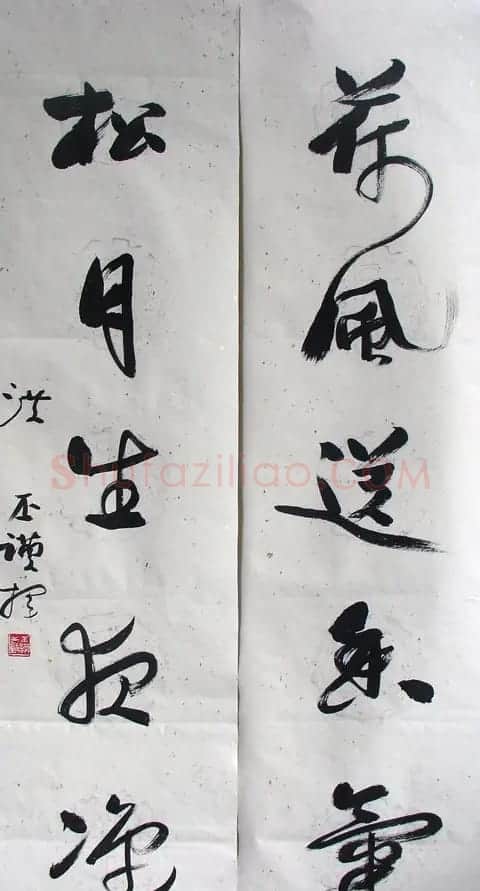 荷風送香氣
松月生夜凉
洪丕謨揮
Shufaziliao.COM